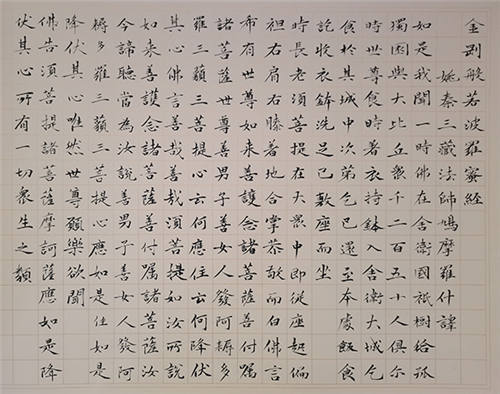 金剛般若波羅蜜經
姚秦三藏法師鳩摩羅什譯
如是我聞一時佛在舍衛國祇樹給孤
獨園與大比丘眾千二百五十人俱尔
時世尊食時著衣持鉢入舍衛大城乞
食於其城中次第乞已還至本處飯食
訖收衣鉢洗足已敷座而坐
時長老須菩提在大眾中即從座起偏
袒右肩右膝著地合掌恭敬而白佛言
希有世尊如來善護念諸菩薩善付囑
諸菩薩世尊善男子善女人發阿耨多
羅三藐三菩提心云何應住云何降伏
其心佛言善哉善哉須菩提如汝所說
如來善護念諸菩薩善付囑諸菩薩汝
今諦聽當為汝說善男子善女人發阿
耨多羅三藐三菩提心應如是住如是
降伏其心唯然世尊願樂欲聞
佛告須菩提諸菩薩摩訶薩應如是降
伏其心所有一切眾生之類